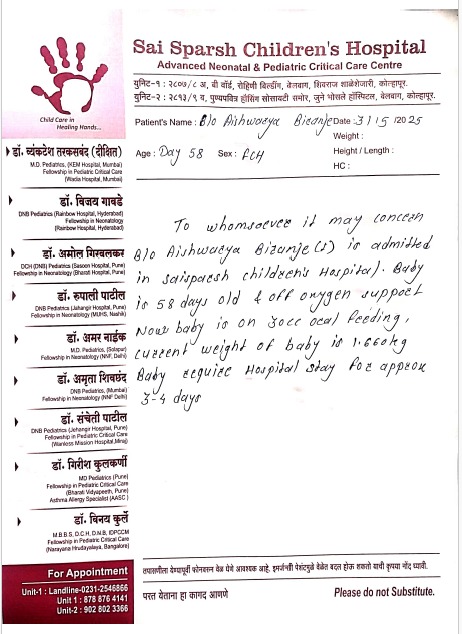 Sai Sparsh Children's Hospital
Advanced Neonatal & Pediatric Critical Care Centre
युनिट-१ : २८०७/८ अ, बी वॉर्ड, रोहिणी बिल्डींग, बेलबाग, शिवराज शाळेशेजारी, कोल्हापूर.
युनिट-२ : २८१३/९ ब, पुण्यपवित्र हौसिंग सोसायटी समोर, जुने भोसले हॉस्पिटल, बेलबाग, कोल्हापूर.
Child Care in
Healing Hands...
Patient's Name : B/o Aishwarya Bizanje Date : 3/15/2025
Weight :
Age : Day 58 Sex : FCH Height / Length :
HC :
डॉ. व्यंकटेश तरकसबंद (दीक्षित)
M.D. Pediatrics, (KEM Hospital, Mumbai)
Fellowship in Pediatric Critical Care
(Wadia Hospital, Mumbai)
डॉ. विजय गावडे
DNB Pediatrics (Rainbow Hospital, Hyderabad)
Fellowship in Neonatology
(Rainbow Hospital, Hyderabad)
डॉ. अमोल गिरवलकर
DCH (DNB) Pediatrics (Sasoon Hospital, Pune)
Fellowship in Neonatology (Bharati Hospital, Pune)
डॉ. रुपाली पाटील
DNB Pediatrics (Jehangir Hospital, Pune)
Fellowship in Neonatology (MUHS, Nashik)
डॉ. अमर नाईक
M.D. Pediatrics, (Solapur)
Fellowship in Neonatology (NNF, Delhi)
डॉ. अमृता शिवछंद
DNB Pediatrics, (Mumbai)
Fellowship in Neonatology (NNF Delhi)
डॉ. संचेती पाटील
DNB Pediatrics (Jehangir Hospital, Pune)
Fellowship in Pediatric Critical Care
(Wanless Mission Hospital,Miraj)
डॉ. गिरीश कुलकर्णी
MD Pediatrics (Pune)
Fellowship in Pediatric Critical Care
(Bharati Vidyapeeth, Pune)
Asthma Allergy Specialist (AASC )
डॉ. विनय कुर्ले
M.B.B.S, D.C.H, D.N.B, IDPCCM
Fellowship in Pediatric Critical Care
(Narayana Hrudayalaya, Bangalore)
To whomsoever it may concern
B/o Aishwarya Bizanje(s) is admitted
in saisparsh children's Hospital. Baby
is 58 days old & off oxygen support
Now baby is on 30cc oral feeding,
current weight of baby is 1.660kg
Baby require Hospital stay for approx
3-4 days
For Appointment
Unit-1 : Landline-0231-2546866
Unit 1 : 878 876 4141
Unit-2 : 902 802 3366
तपासणीला येण्यापूर्वी फोनवरून वेळ घेणे आवश्यक आहे. इमर्जन्सी पेशंटमुळे वेळेत बदल होऊ शकतो याची कृपया नोंद घ्यावी.
परत येताना हा कागद आणणे Please do not Substitute.